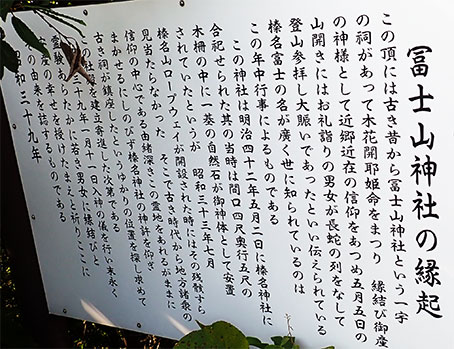 冨士山神社の縁起
この頂には古き昔から冨士山神社という一宇
の祠があって木花開耶姫命をまつり 縁結び御産
の神様として近郷近在の信仰をあつめ五月五日の
山開きにはお礼詣りの男女が長蛇の列をなして
登山参拝し大賑いであったといい伝えられている
榛名富士の名が廣く世に知られているのは
この年中行事によるものである
この神社は明治四十二年五月二日に榛名神社に
合祀せられた其の当時は間口四尺奥行五尺の
木柵の中に一基の自然石が御神体として安置
されていたというが 昭和三十三年七月
榛名山ロープウェイが開設された時にはその残骸すら
見当たらなかった そこで古き時代から地方諸衆の
信仰の中心である由緒深きこの霊地をあれるがままに
まかせるにしのびず榛名神社の神計を仰ぎ
古き祠が鎮座したというゆかりの位置を探し求めて
の社殿を建立寄進した次第である
三十九年一月十一日入神の儀を行い末永く
霊験あらたかに若き男女に縁結びと
産の幸せを授けたまえと祈りここに
の由来を誌するものである
昭和三十九年